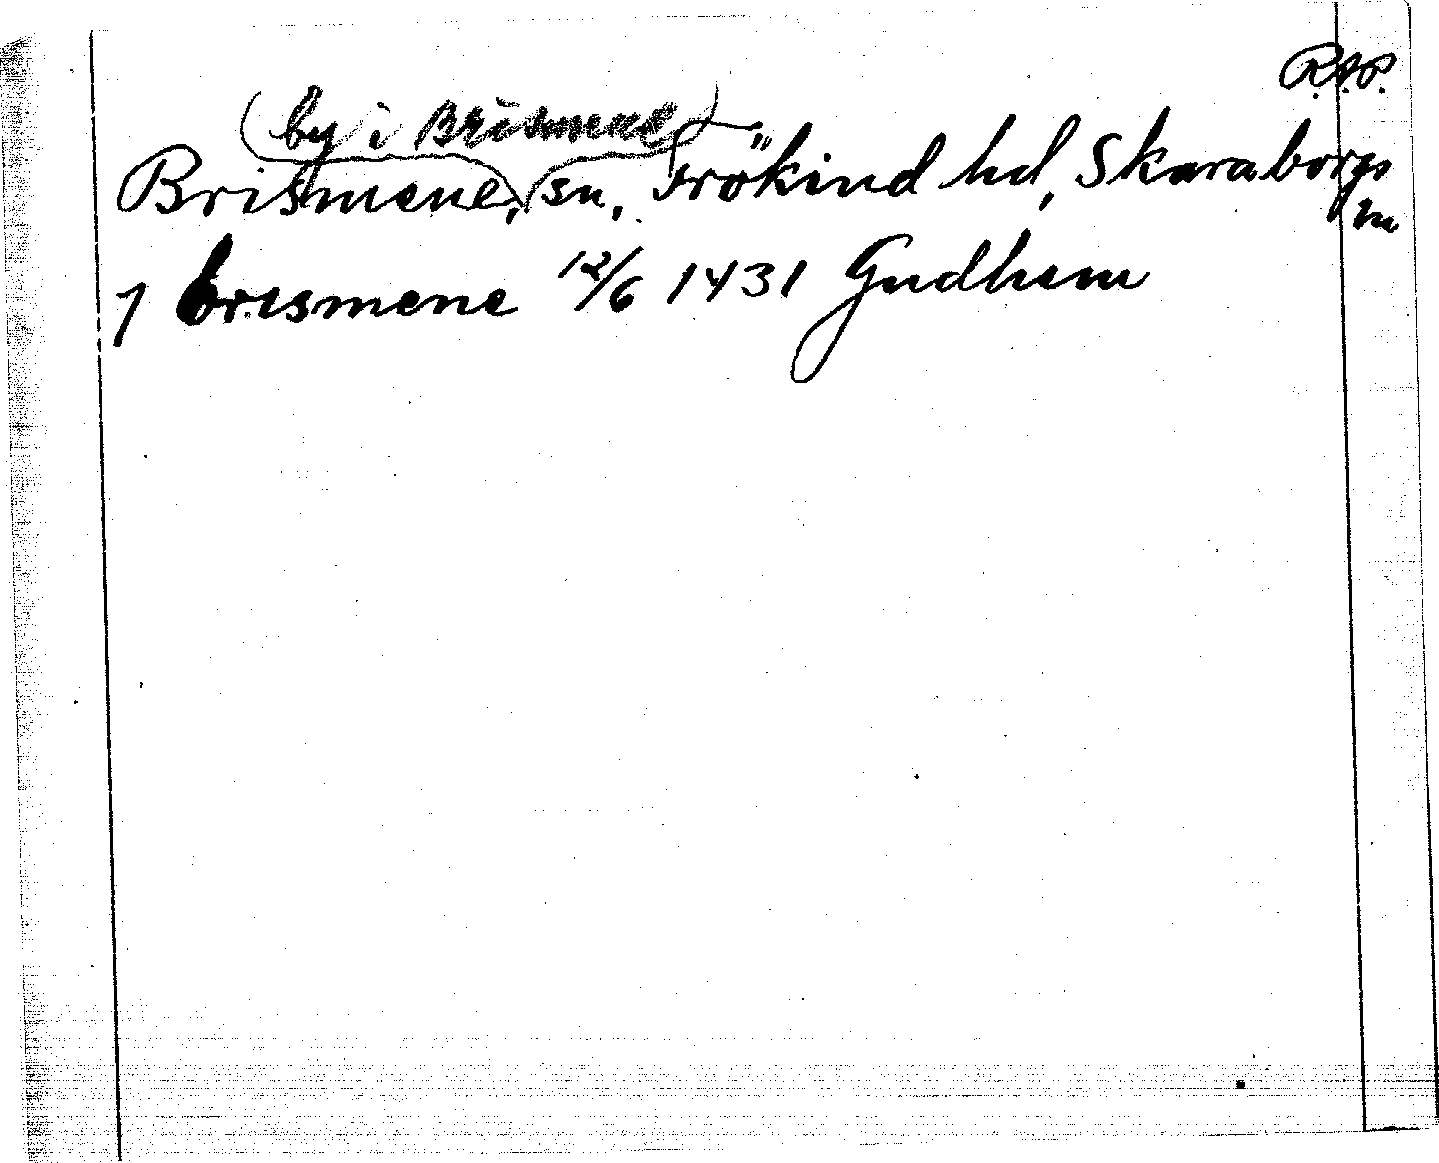 R.A.P.
(by i Brismene)
Brismene, sn, Frökind hd, Skaraborgs
ln
J brismene 12/6 1431 Gudhem